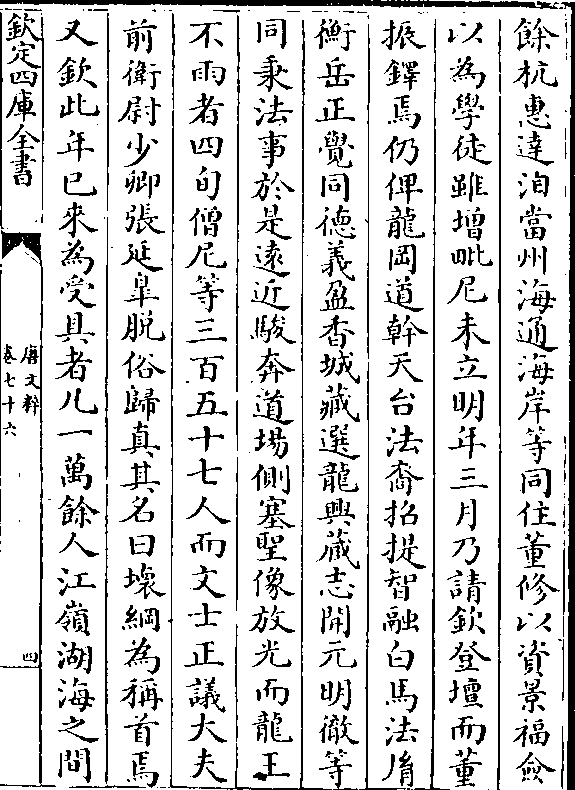 餘杭惠達洎當州海通海岸等同住董修以資景福僉
以為學徒雖增毗尼未立明年三月乃請欽登壇而董
振鐸焉仍俾龍岡道幹天台法裔招提智融白馬法胤
衡岳正覺同德義盈香城藏選龍興藏志開元明徹等
同秉法事於是遠近駿奔道場側塞聖像放光而龍王
不雨者四旬僧尼等三百五十七人而文士正議大夫
前衛尉少卿張延皐脱俗歸真其名曰壞綱為稱首焉
又欽此年已來為受具者凡一萬餘人江嶺湖海之間
欽定四庫全書
唐文粹
卷七十六
四